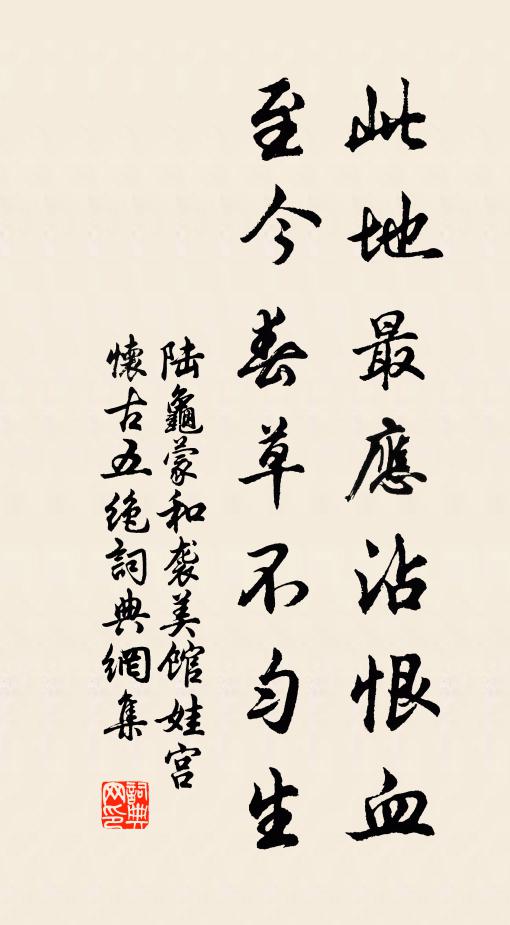 此地最應沾恨血
至今春草不勻生
陆龜蒙和袭美馆娃宫
懷古五绝詞典網集
詞典网印